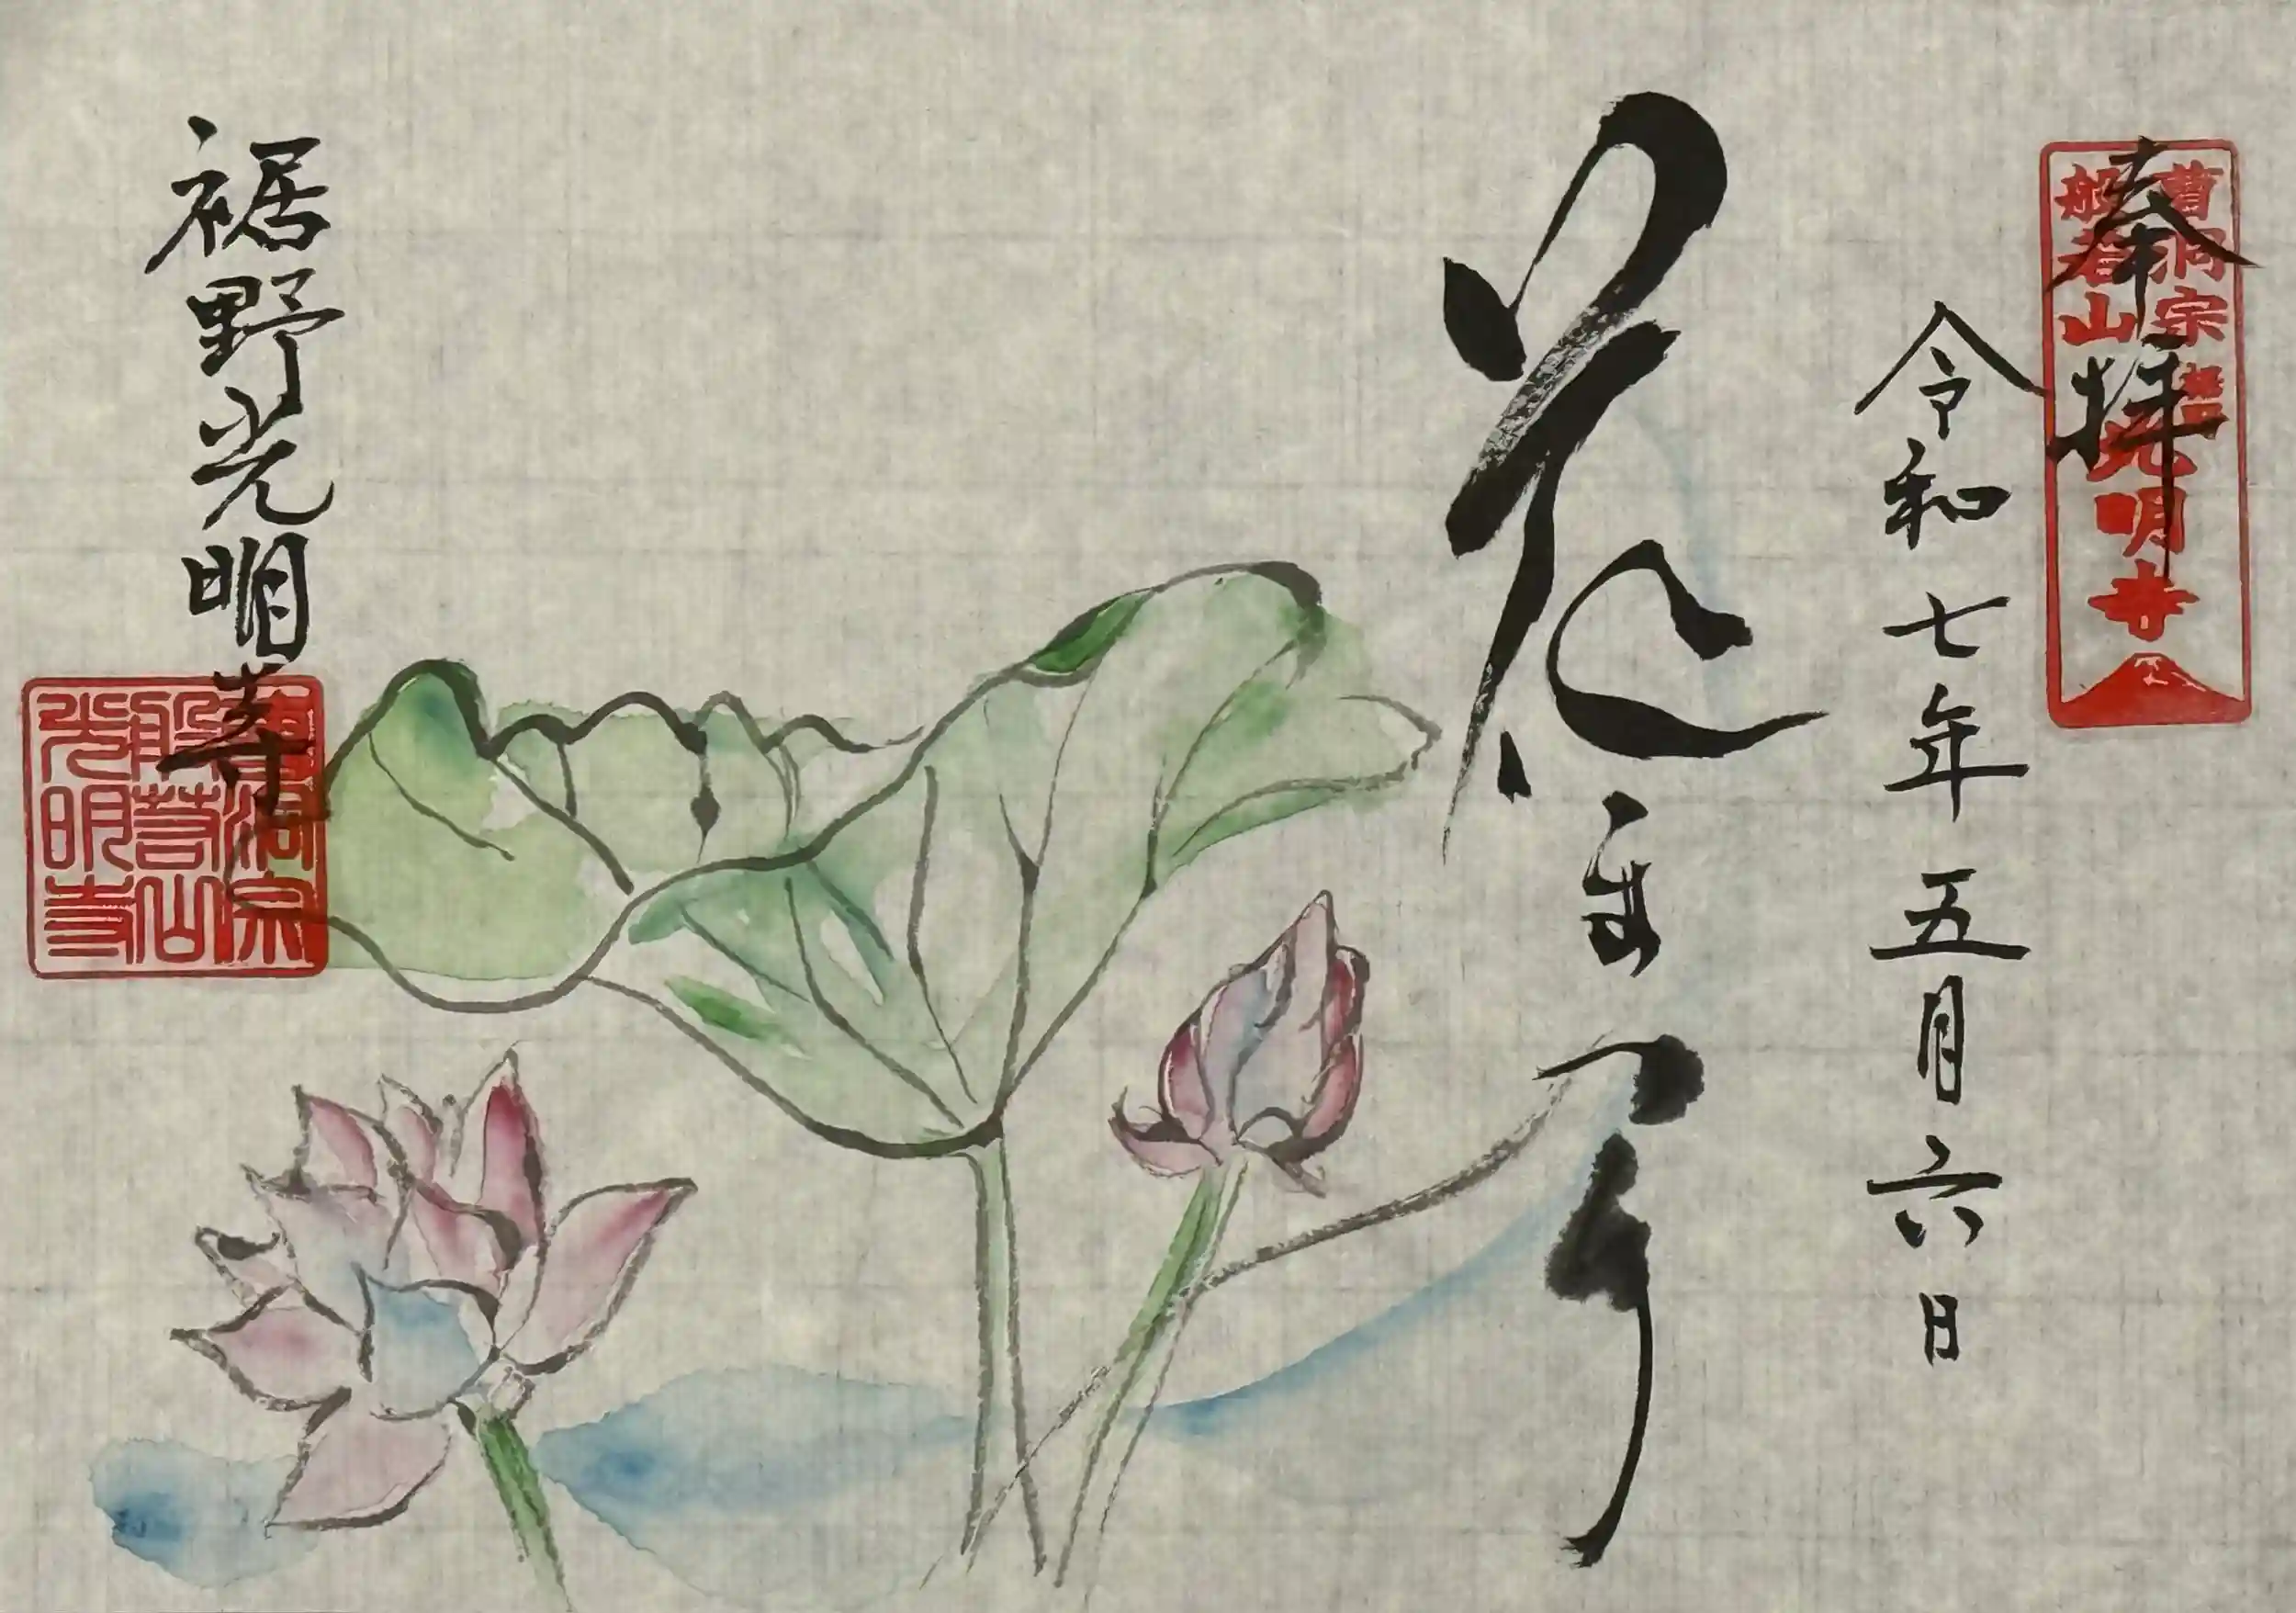 奉拝
曹洞宗
般若山
光明寺
令和七年五月六日
花まつり
裾野光明寺
曹洞宗
般若山
光明寺